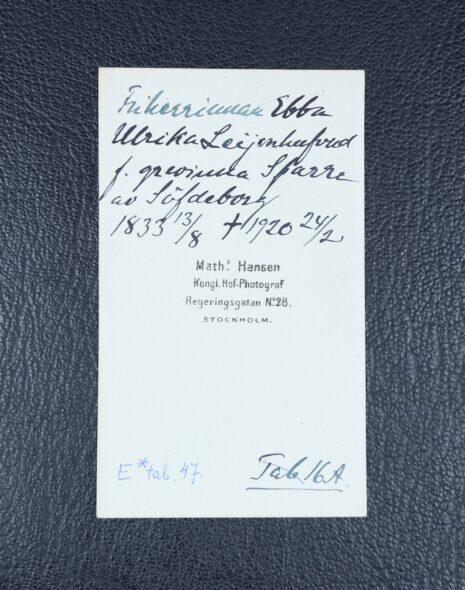 Friherrinnan Ebba
Ulrika Leijonhufvud
f. grevinna Sparre
av Söfdeborg
1833 13/8 † 1920 24/2
Math.s Hansen
Kongl. Hof-Photograf
Regeringsgatan No 28.
STOCKHOLM.
E* tab. 47.
Tab 16A.